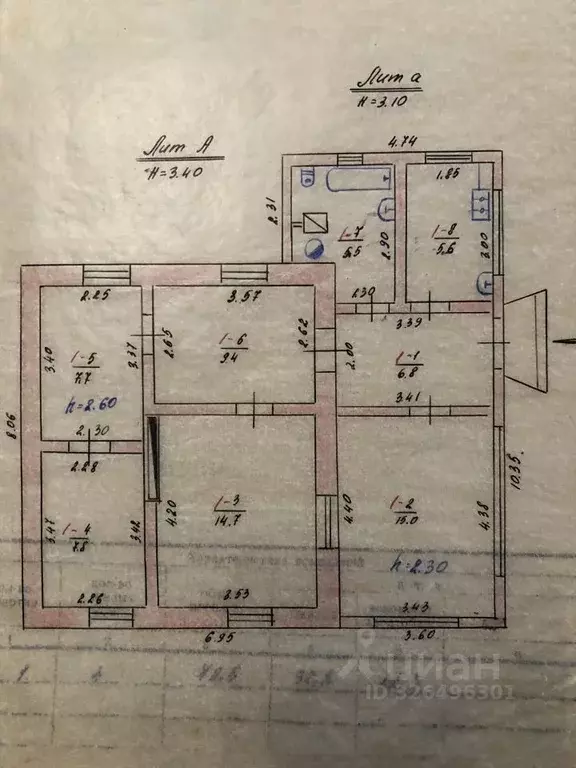 Лит а
H=3.10
4.74
Лит А
H=3.40
1.85
2.31
1-7
5.5
2.90
1-8
5.6
3.00
2.30
2.25
3.57
3.39
3.40
1-5
7.7
3.37
2.65
1-6
9.4
2.62
2.00
1-1
6.8
h=2.60
3.41
8.06
2.30
2.28
10.35
3.47
1-4
7.8
3.42
4.20
1-3
14.7
4.40
1-2
15.0
4.38
h=2.30
2.26
3.53
3.43
6.95
3.60
циан
ID 326496301